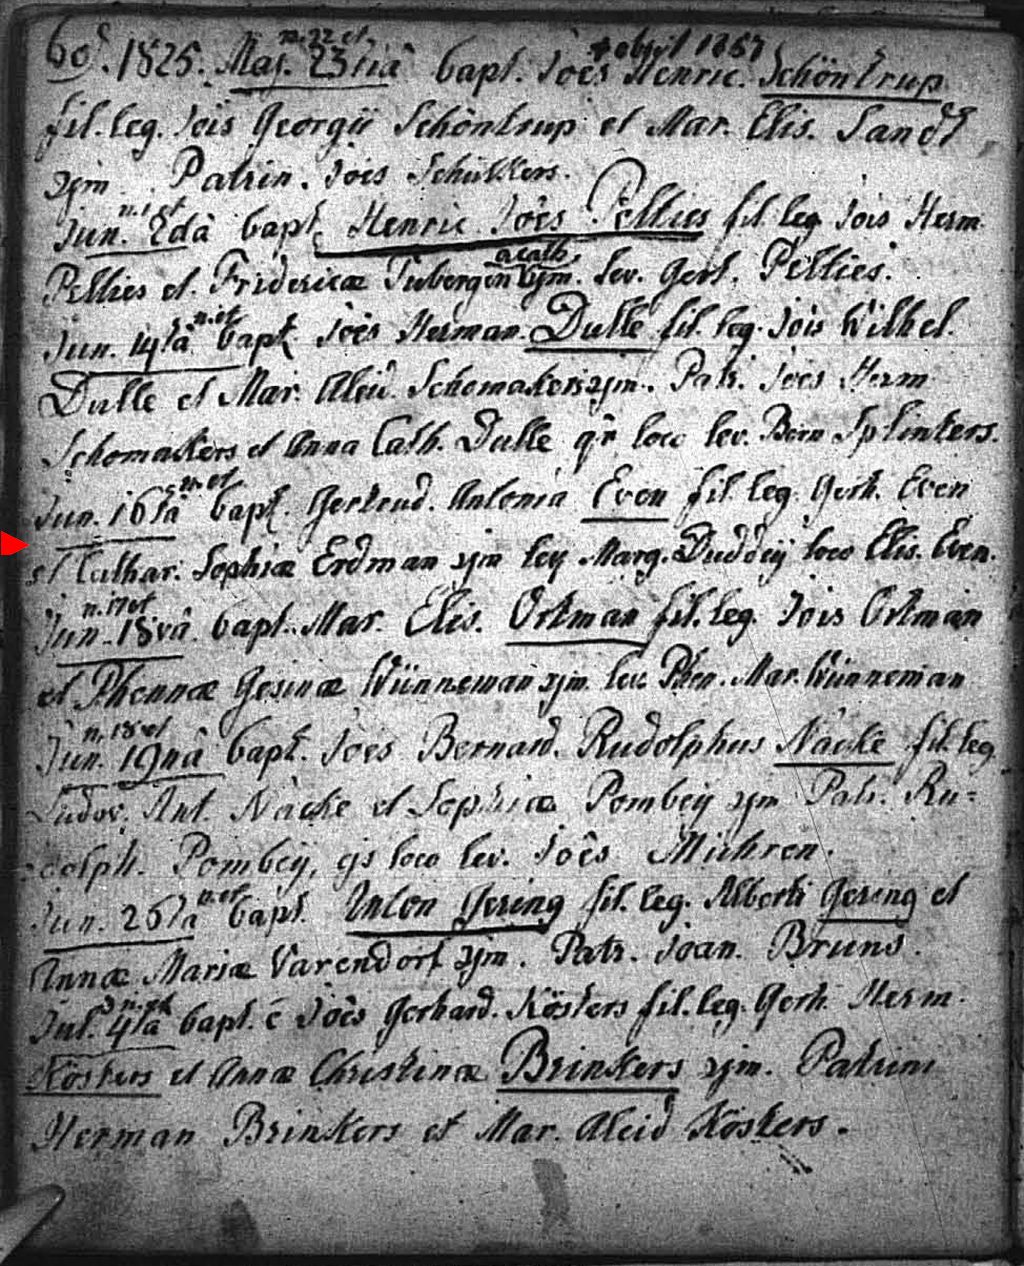 60s. 1825. Maj. n. 22 et 23tiâ bapt. Joês Henric. Schöntrup
† obijt 1857
fil. leg. Jois Georgii Schöntrup et Mar. Elis.
Patrin. Joês Schulkers.
Jun. n. 1 et 2dâ bapt. Henric Joês Pellies fil. leg. Jois Herm.
Pellies et Fridericæ Tubergen acath. Lev. Gert. Pellies.
Jun. 14tâ n. et bapt. Joês Herman. Dulle fil. leg. Jois Wilhel.
Dulle et Mar. Aleid. Schomakers Patr. Joês Herm
Schomakers et Anna Cath. Dulle loco lev. Bern Splinters.
Jun. 16tâ n. et bapt. Gertrud. Antonia Even fil. leg. Gerh. Even
et Cathar. Sophiæ Erdman Marg. Duddeÿ loco Elis. Even.
Jun. n. 17 et 18vâ bapt. Mar. Elis. Ortman fil. leg. Jois Ortman
et Phennæ Gesinæ Wünneman lev. Phen. Mar. Wünneman
Jun. n. 18 et 19nâ bapt. Joês Bernard. Rudolphus Näcke fil. leg.
Ludov. Ant. Näcke et Sophiæ Pombeÿ Patr. Ru=
dolph. Pombeÿ, loco lev. Joês
Jun. 26tâ n. et bapt. Anton Gering fil. leg. Alberti Gering et
Annæ Mariæ Varendorf Patr. Joan. Bruns.
Jul. 3 n. et 4tâ bapt. ê Joês Gerhard. Kösters fil. leg. Gerh. Herm.
Kösters et Annæ Christinæ Brinkers Patrini
Herman Brinkers et Mar. Aleid Kösters.